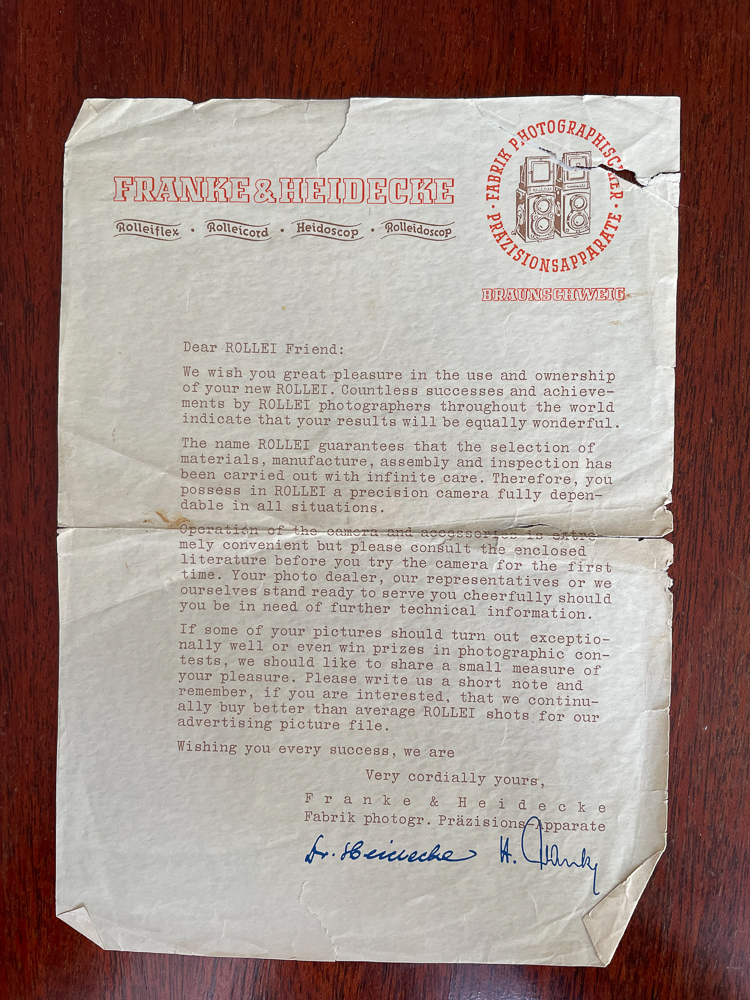 FRANKE & HEIDECKE
Rolleiflex • Rolleicord • Heidoscop • Rolleidoscop
• FABRIK PHOTOGRAPHISCHER • PRÄZISIONSAPPARATE
BRAUNSCHWEIG
Dear ROLLEI Friend:
We wish you great pleasure in the use and ownership
of your new ROLLEI. Countless successes and achieve-
ments by ROLLEI photographers throughout the world
indicate that your results will be equally wonderful.
The name ROLLEI guarantees that the selection of
materials, manufacture, assembly and inspection has
been carried out with infinite care. Therefore, you
possess in ROLLEI a precision camera fully depen-
dable in all situations.
Operation of the camera and accessories is extre-
mely convenient but please consult the enclosed
literature before you try the camera for the first
time. Your photo dealer, our representatives or we
ourselves stand ready to serve you cheerfully should
you be in need of further technical information.
If some of your pictures should turn out exceptio-
nally well or even win prizes in photographic con-
tests, we should like to share a small measure of
your pleasure. Please write us a short note and
remember, if you are interested, that we continu-
ally buy better than average ROLLEI shots for our
advertising picture file.
Wishing you every success, we are
Very cordially yours,
Franke & Heidecke
Fabrik photogr. Präzisions-Apparate
Dr. Heidecke H. Franke